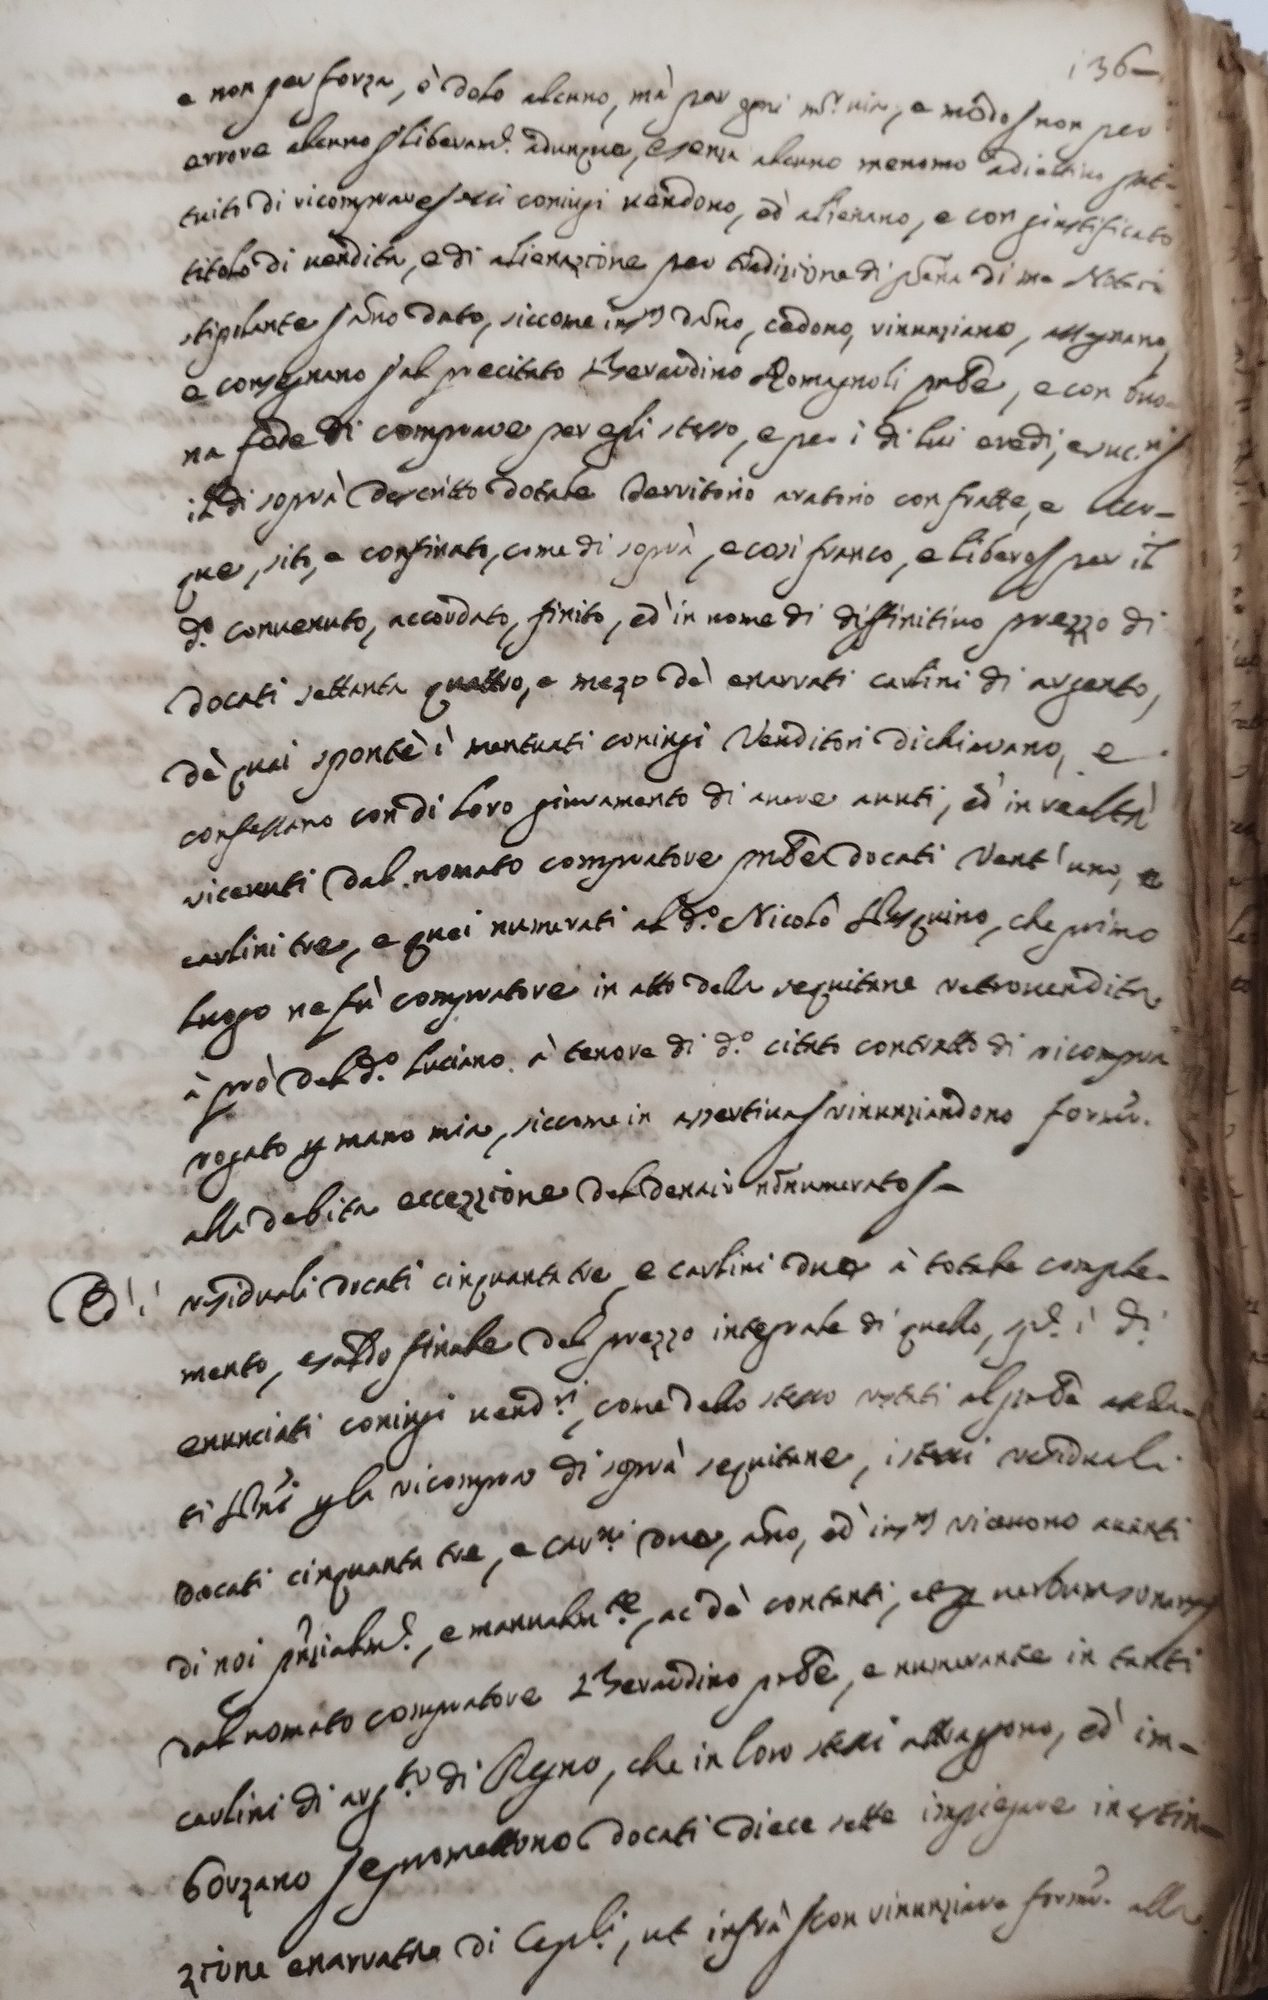 136
e non per forza, ò dolo alcuno, mà per ogni m.r via, e modo, non per
errore alcuno, liberam.e adunque, e senza alcuno menomo adiettivo pat-
tuito di ricomprare, essi coniugi vendono, ed alienano, e con giustificato
titolo di vendita, e di alienazione per tradizione di penna di me Notaro
stipulante, hãno dato, siccome danno, cedono, rinunziano, assegnano,
e consegnano al precitato Berardino Romagnoli pñte, e con buo-
na fede di comprare per egli stesso, e per i di lui eredi, e succ.ri
il di soprà descritto dotale Territorio aratorio con fratte, e
que, sito, e confinato, come di soprà, e così franco, e libero, per il
d.o convenuto, accordato, finito, ed in nome di diffinitivo prezzo di
docati settanta quattro, e mezo dè enarrati carlini di argento,
dè quai spontè i mentuati coniugi Venditori dichiarano, e
confessano con di loro giuramento di avere avuti, ed in realtà
ricevuti dal nomato compratore pñte docati Vent'uno, e
carlini tre, e quei numerati al d.o Nicolò che primo
luogo ne fù compratore in atto della sequitane retrovendita
à prò del d.o Luciano à tenore di d.o citato contratto di ricompra
rogato p mano mia, siccome in assertiva, rinunziandono
alla debita eccezzione del denaio nõ numerato,
Ed i residuali docati cinquanta tre, e carlini due à totale comple-
mento, e saldo finale del prezzo integrale di quello, i di
enunciati coniugi vend.ri, come dello stesso restati al pñte
ti p la ricompra di soprà sequitane, i stessi residuali
docati cinquanta tre, e carl.ni due, ãno, ed ricevono avanti
di noi pñzialm.e, e manualm.te, ac dè contanti, et
dal nomato compratore Berardino pñte, e numerante in tanti
carlini di arg.to di Regno, che in loro stessi attraggono, ed im-
borzano, e promettono docati diece sette impiegare in estin-
zione enarratne di Cap.li, ut infrà, con rinunziare alla